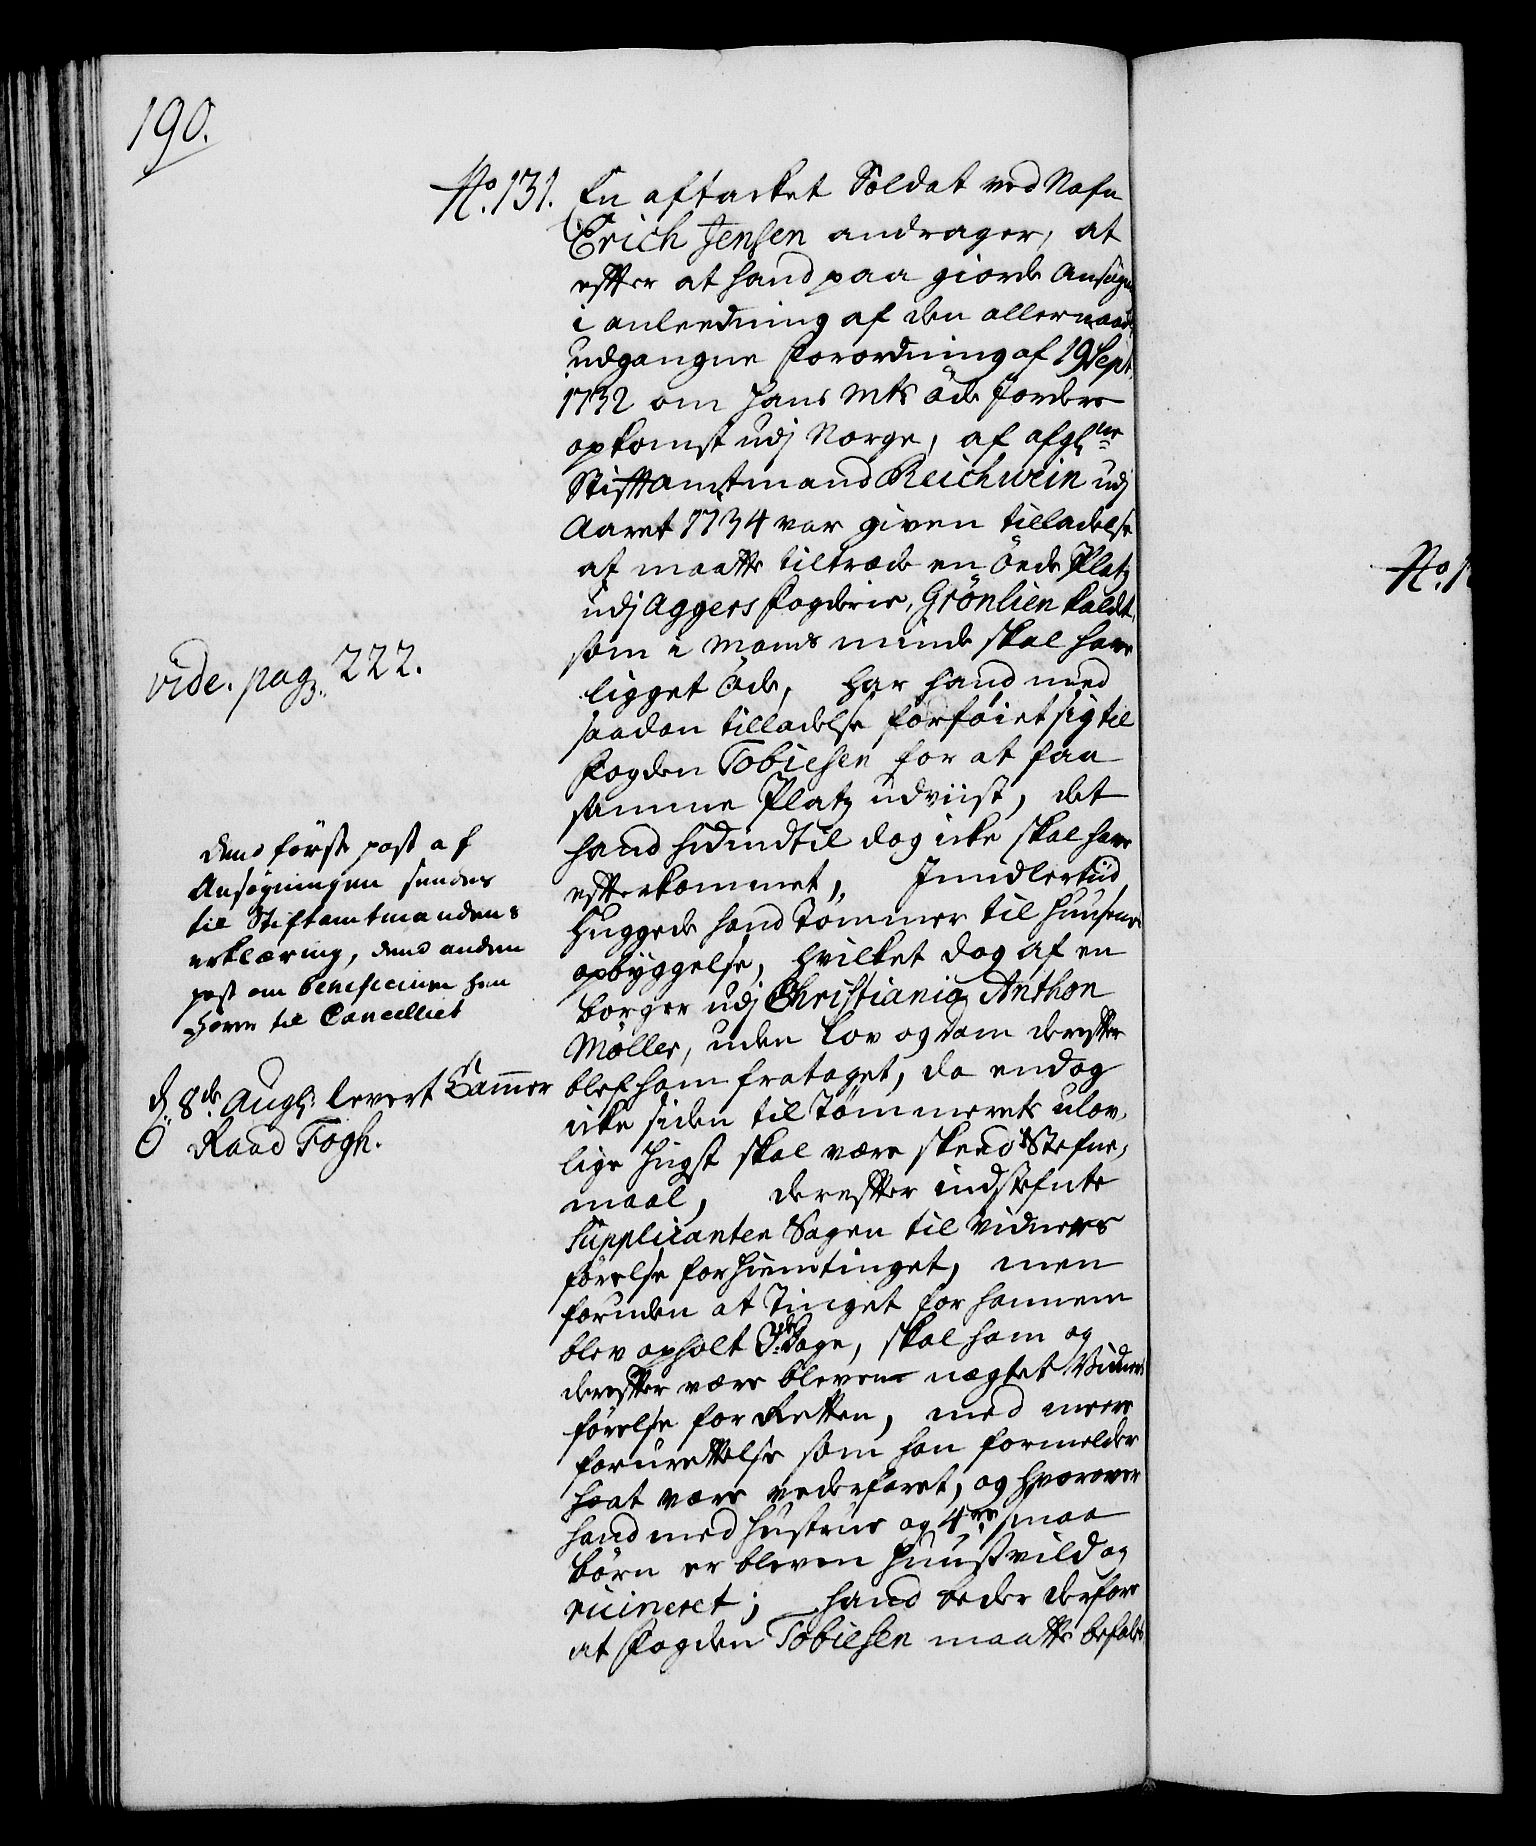 190.
No. 131. En aftacket Soldat ved Nafn
Erich Jensen andrager, at
efter at hand paa giorde Ansøgn
i anleedning af den allernaad.
udgangne Forordning af 19 Sept.
1732 om Hans Mts Öde Jorders
opkomst udj Norge, af afg.ne
Stiftamtmand Reichwein udj
Aaret 1734 var given tilladelse
at maatte tiltræde en Öede Platz
udj Aggers Fogderie, Grönlien kaldt,
som i Mands minde skal have
ligget Öde, har hand med
saadan tilladelse forföiet sig til
Fogden Tobiesen for at faa
samme Platz udviist, det
hand hidindtil dog icke skal have
efterkommet, Imidlertiid
Huggede hand Tömmer til Huusenes
opbyggelse, hvilket dog af en
borger udj Christiania Anthon
Möller, uden Lov og dom derefter
blef ham frataget, da endog
icke siden til Tömmerets ulov-
lige Hugst skal være skeed Stefne-
maal, derefter indstefnte
Supplicanten Sagen til Vidners
förelse for Hiemtinget, men
foruden at Tinget for hannem
blev opholt 3de Dage, skal ham og
derefter være bleven nægtet Vidners
förelse for Retten, med meere
forurettelse som han formelder
at være vederfaret, og hvorover
hand med Hustrue og 4re smaa
börn er bleven Huusvild og
ruineret; hand beder derfore
at Fogden Tobiesen maatte befales
vide. pag. 222.
dend förste post af
Ansøgningen sendes
til Stiftamtmandens
erklæring, dend anden
post om beneficium hen
hörer til Cancelliet
d. 8de Aug. levert Cammer
Raad Fogh.
No. 1